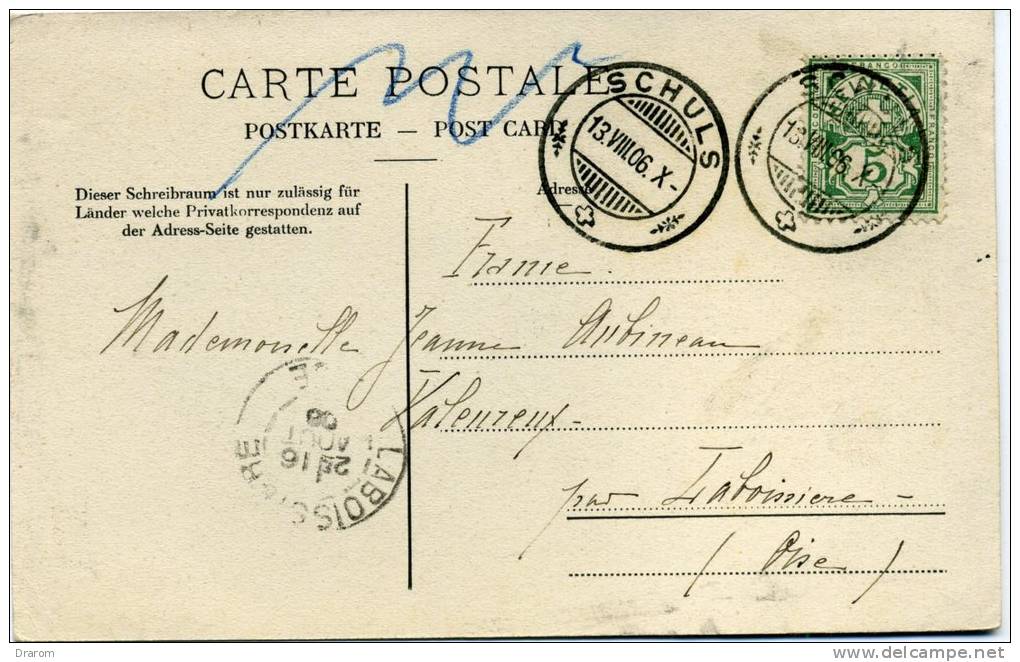 CARTE POSTALE
POSTKARTE — POST CARD
SCHULS
13.VIII.06.X-
SCHULS
13.VIII.06.X-
FRANCO
5
Dieser Schreibraum ist nur zulässig für
Länder welche Privatkorrespondenz auf
der Adress-Seite gestatten.
Adresse
France.
Mademoiselle Jeanne Aubineau
Valenreux -
par Laboissiere -
( Oise )
LABOISSIERE
16
AOUT
06
Drarom
delcampe.net